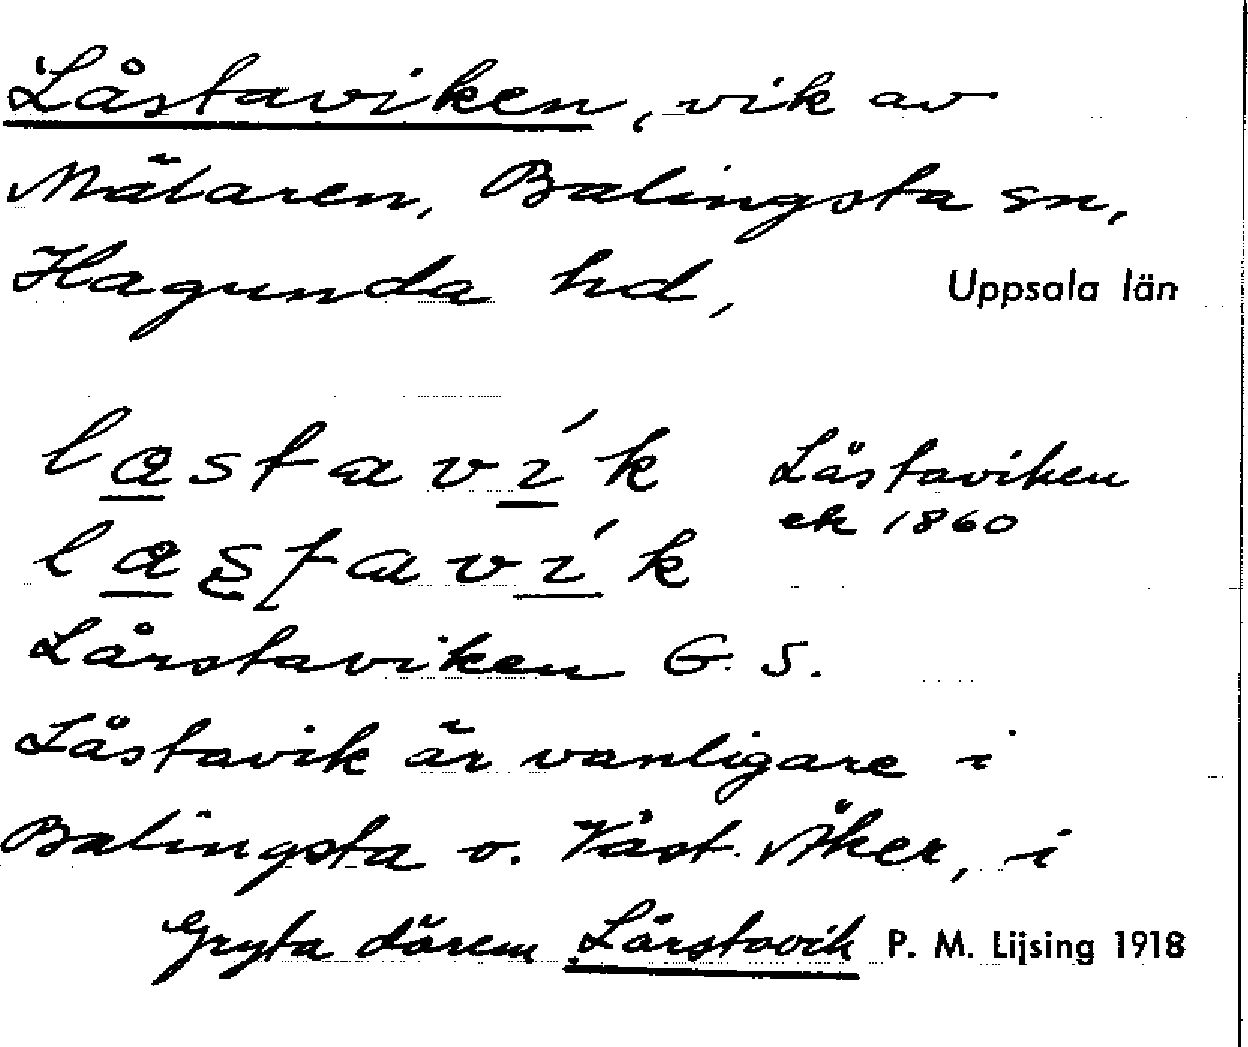 Låstaviken, vik av
Mälaren, Balingsta sn,
Hagunda hd, Uppsala län
lastavík Låstaviken
ek 1860
lastavík
Lårstaviken G. S.
Låstavik är vanligare i
Balingsta o. Väst. Åker, i
Gryta därem Lårstavik P. M. Lijsing 1918